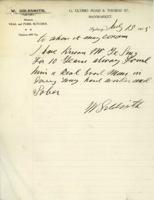 W. GOLDSMITH,
VEAL AND PORK BUTCHER
C. ULTIMO ROAD & THOMAS ST.
HAYMARKET
Sydney, July 13
To whom it may concern
I have Known Mr
for 10 years always found
him a Real Good Man in
Every way hard worker and
Sober
W Goldsmith